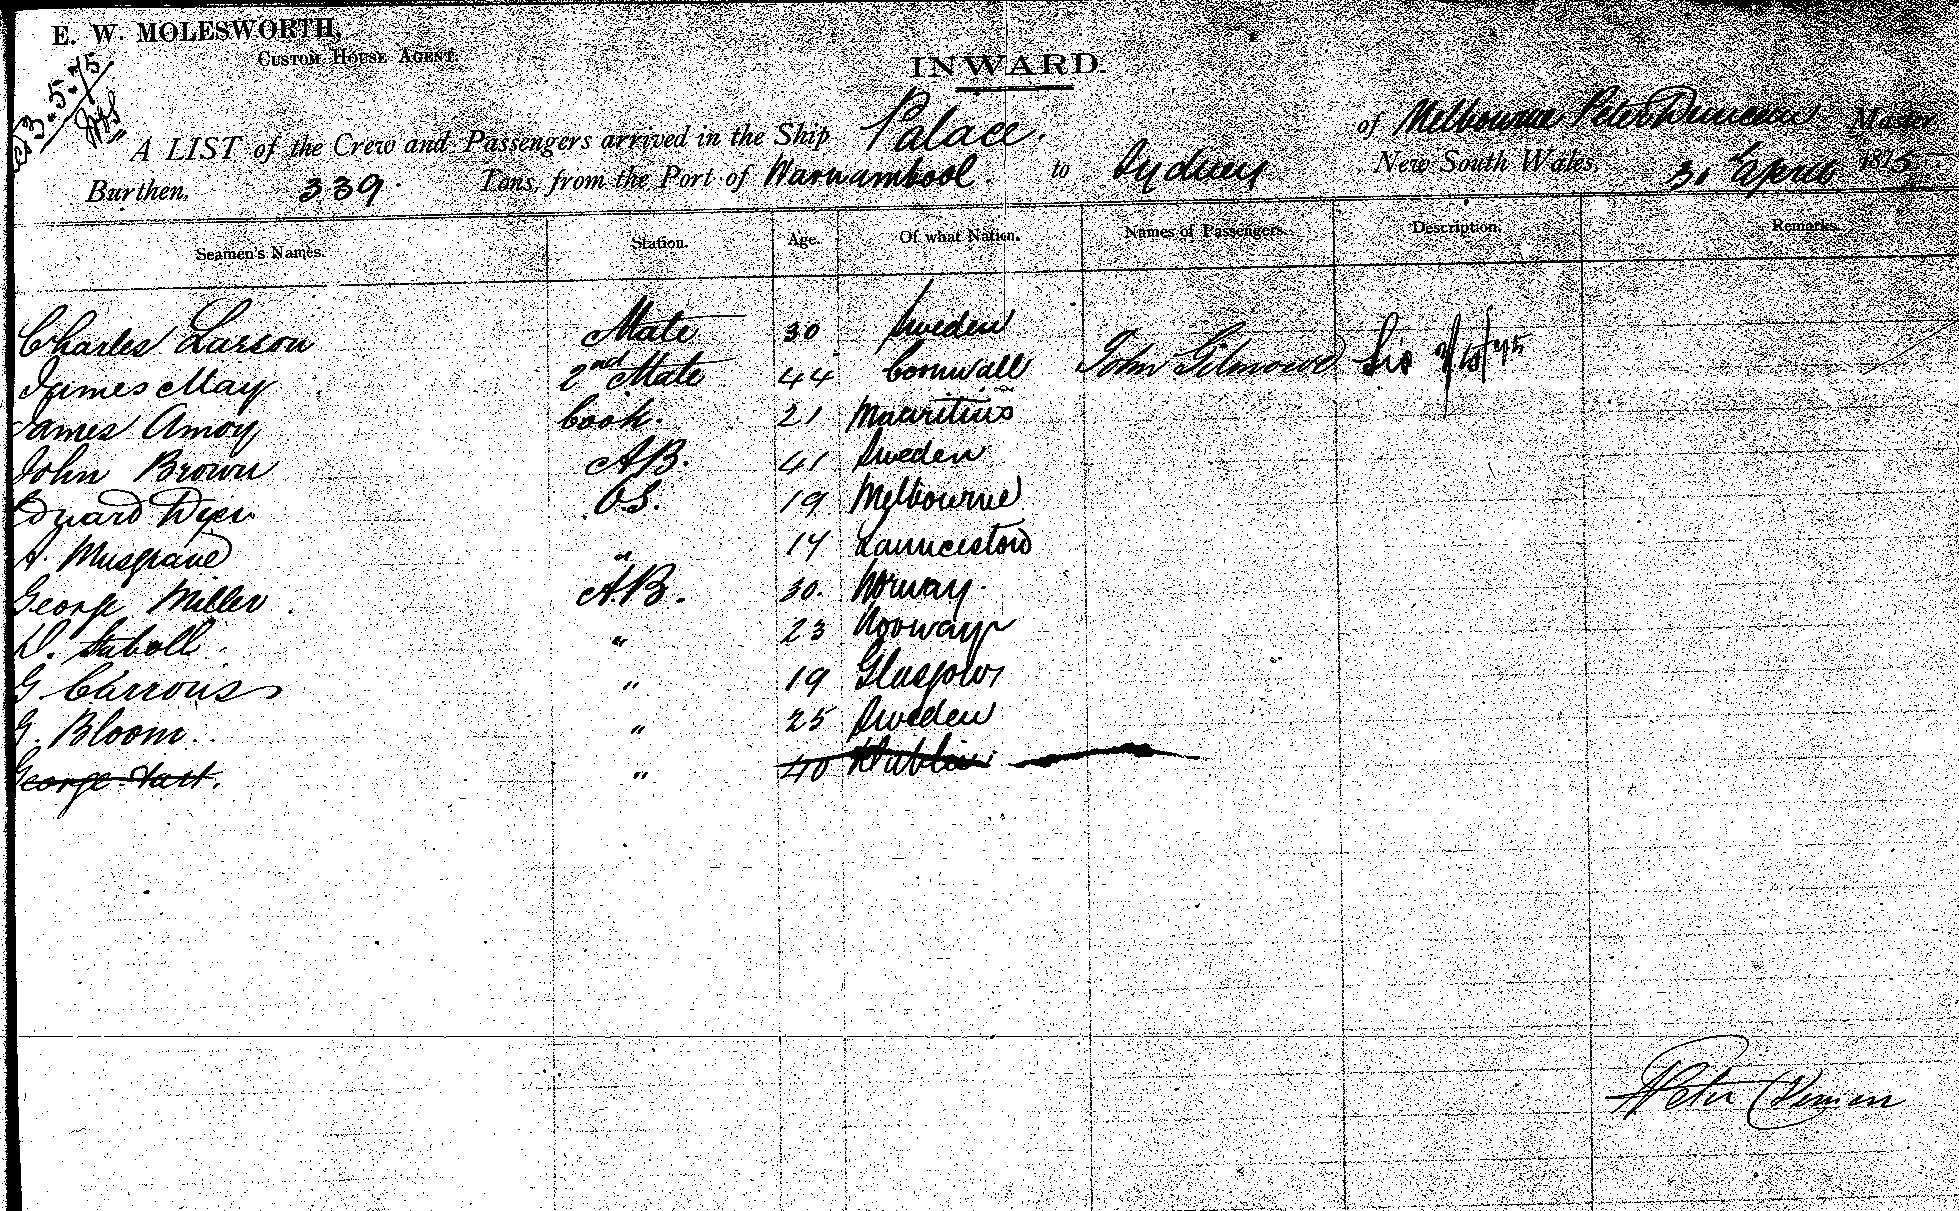 E. W. MOLESWORTH,
CUSTOM HOUSE AGENT.
3.5.75
INWARD.
A LIST of the Crew and Passengers arrived in the Ship Palace. of Melbourne Peter Duncan Master
Burthen, 339. Tons, from the Port of Warnambool. to Sydney New South Wales, 30 April 1875
Seamen's Names. Station. Age. Of what Nation. Names of Passengers. Description. Remarks.
Charles Larson Mate 30 Sweden
James May 2nd Mate 44 Cornwall John Gilmore
James Amoy Cook. 21 Mauritius
John Brown A.B. 41 Sweden
Edward Dyer O.S. 19 Melbourne
A. Musgrave " 17 Launceston
George Miller A.B. 30. Norway.
D. " 23 Norway
G. Carrous " 19 Glasgow
G. Bloom " 25 Sweden
George Hart. " 40 Dublin
Peter